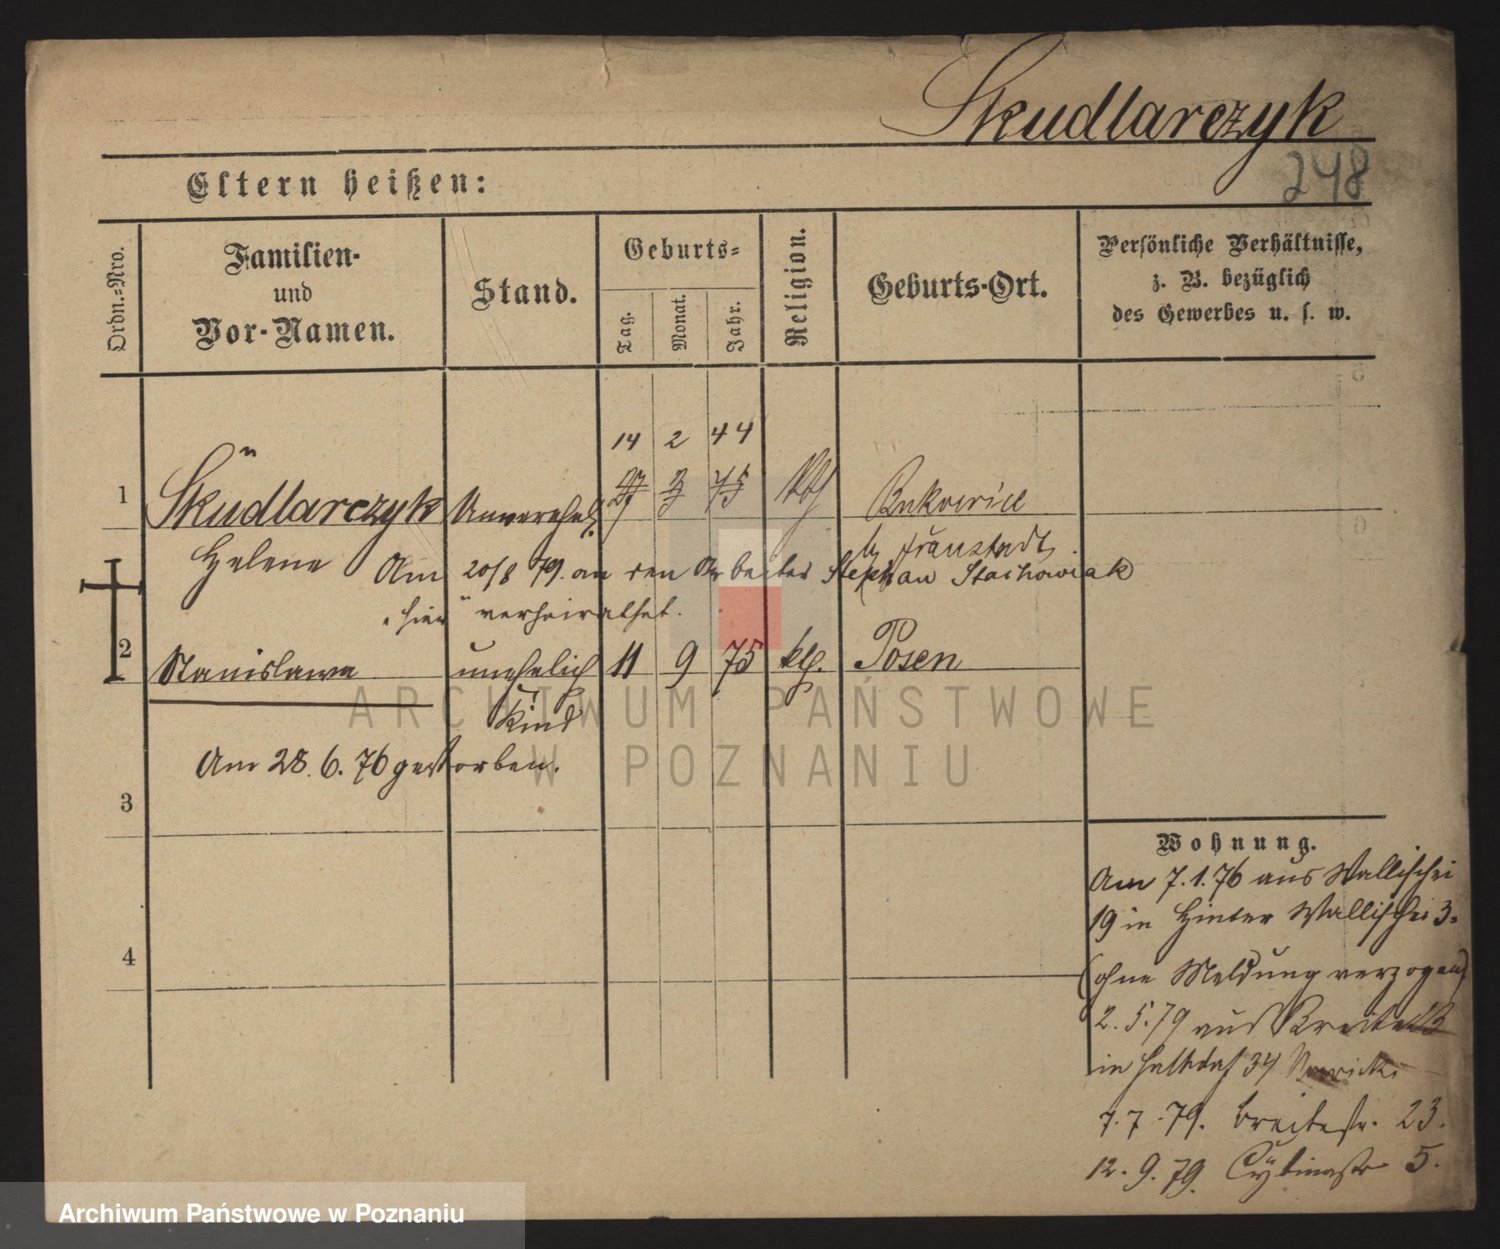 Skudlarczyk
248
Eltern heißen:
Ordn.-Nro.
Familien-
und
Vor-Namen.
Stand.
Geburts-
Tag.
Monat.
Jahr.
Religion.
Geburts-Ort.
Persönliche Verhältnisse,
z. B. bezüglich
des Gewerbes u. s. w.
14 2 44
1 Skudlarczyk Unverehel. 27 3 75 kth Bukowice
Helene
b/ Fraustadt
Am 20/8 79. an den Arbeiter Stephan Stachowiak
"hier" verheirathet.
2 Stanislawa unehelich 11 9 75 kth. Posen
Kind
Am 28.6.76 gestorben.
3
4
Wohnung.
Am 7.1.76 aus Wallischei
19 in Hinter Wallischei 3.
(ohne Meldung verzogen)
2.5.79 aus
in 34
7.7.79. Breitestr. 23.
12.9.79. 5.
ARCHIWUM PAŃSTWOWE
W POZNANIU
Archiwum Państwowe w Poznaniu